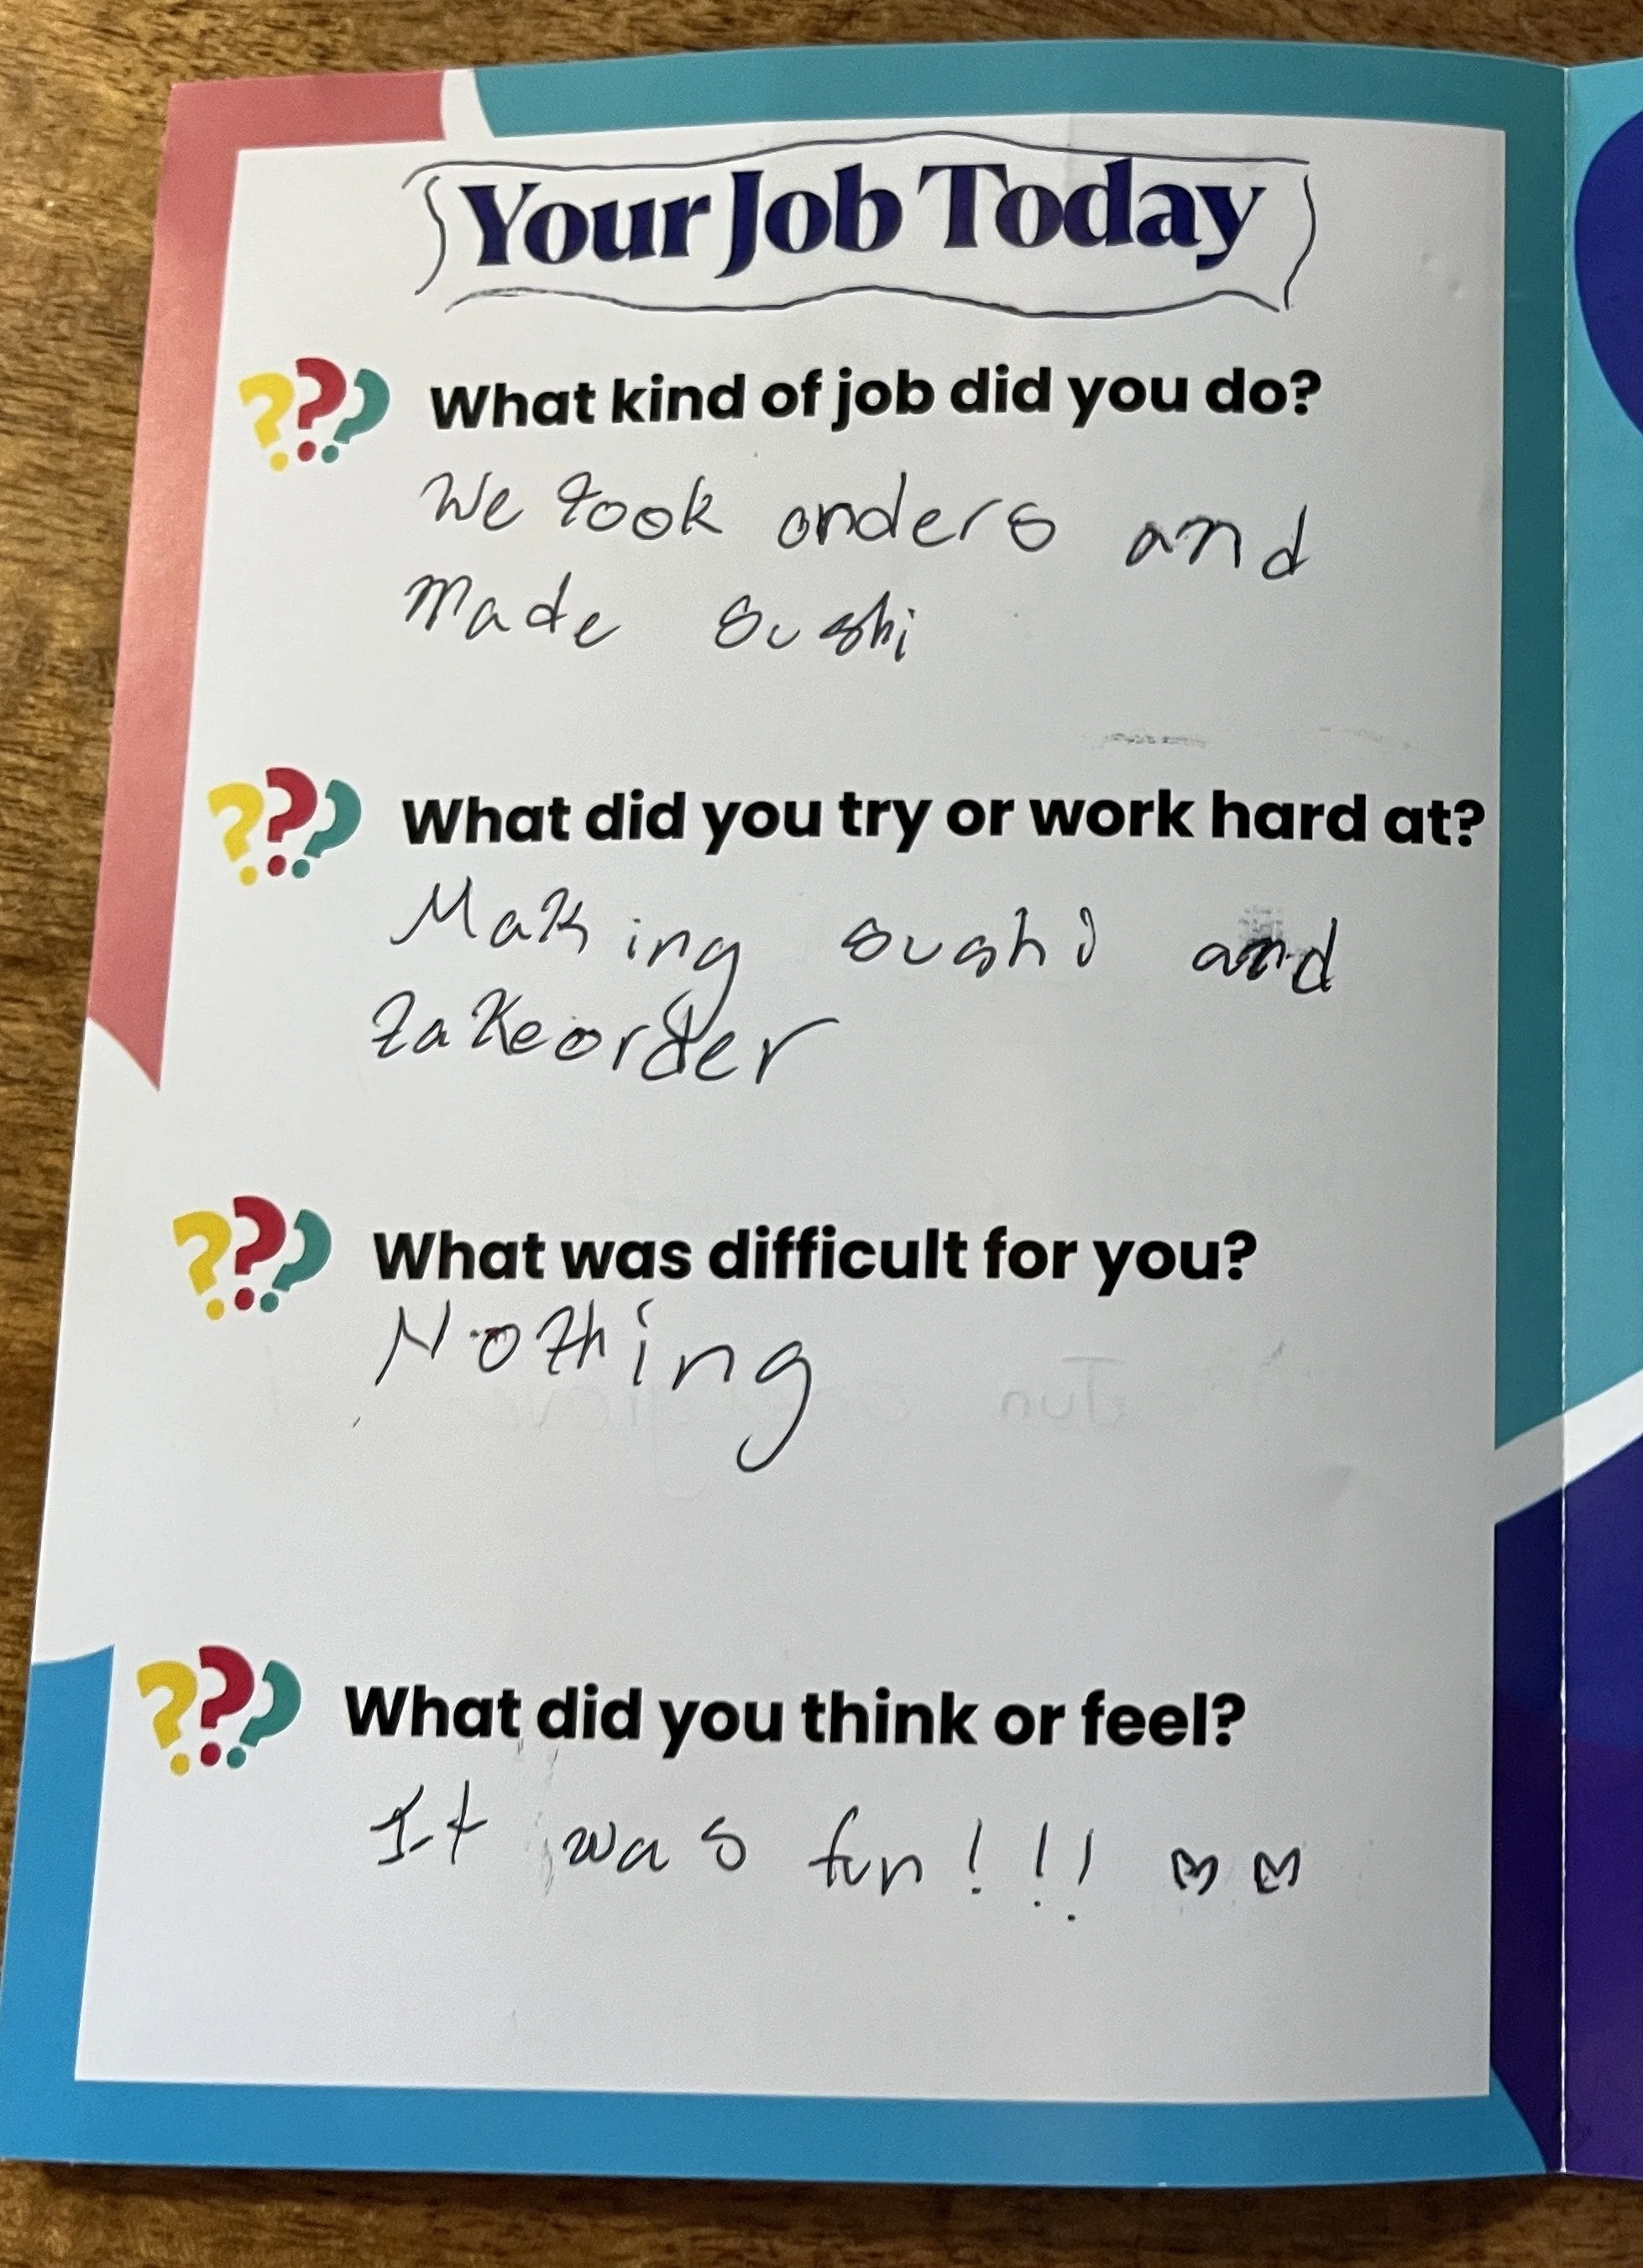 Your Job Today
??? What kind of job did you do?
We took orders and
made sushi
??? What did you try or work hard at?
Making sushi and
takeorder
??? What was difficult for you?
Nothing
??? What did you think or feel?
It was fun!!! ♡♡